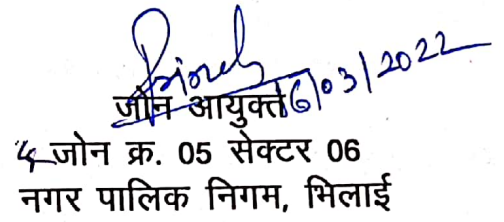 16/03/2022
जोन आयुक्त
जोन क्र. 05 सेक्टर 06
नगर पालिक निगम, भिलाई